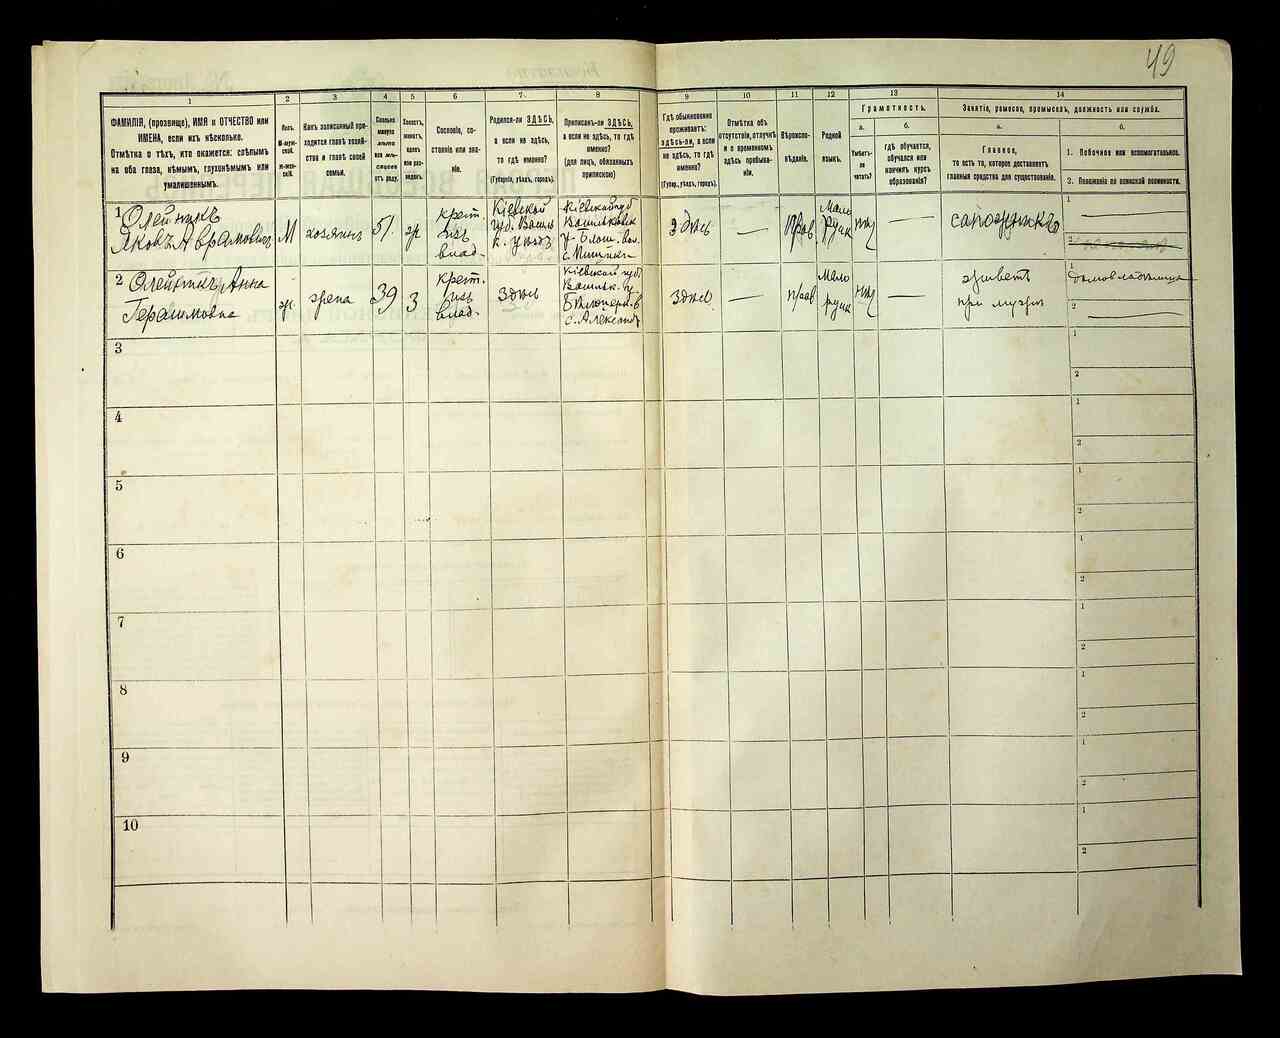 49
1
ФАМИЛІЯ, (прозвище), ИМЯ и ОТЧЕСТВО или
ИМЕНА, если ихъ нѣсколько.
Отмѣтка о тѣхъ, кто окажется: слѣпымъ
на оба глаза, нѣмымъ, глухонѣмымъ или
умалишеннымъ.
2
Полъ.
М-муж-
ской.
Ж-жен-
скій.
3
Какъ записанный при-
ходится главѣ хозяй-
ства и главѣ своей
семьи.
4
Сколько
минуло
лѣтъ
или мѣ-
сяцевъ
отъ роду.
5
Холостъ,
женатъ,
вдовъ
или раз-
веденъ.
6
Сословіе, со-
стояніе или зва-
ніе.
7.
Родился-ли ЗДѢСЬ,
а если не здѣсь,
то гдѣ именно?
(Губернія, уѣздъ, городъ).
8
Приписанъ-ли ЗДѢСЬ,
а если не здѣсь, то гдѣ
именно?
(для лицъ, обязанныхъ
припискою)
9
Гдѣ обыкновенно
проживаетъ:
здѣсь-ли, а если
не здѣсь, то гдѣ
именно?
(Губер., уѣздъ, городъ).
10
Отмѣтка объ
отсутствіи, отлучкѣ
и о временномъ
здѣсь пребыва-
ніи.
11
Вѣроиспо-
вѣданіе.
12
Родной
языкъ.
13
Грамотность.
а.
Умѣетъ-
ли
читать?
б.
гдѣ обучается,
обучался или
кончилъ курсъ
образованія?
14
Занятіе, ремесло, промыселъ, должность или служба.
а.
Главное,
то есть то, которое доставляетъ
главныя средства для существованія.
б.
1. Побочное или вспомогательное.
2. Положеніе по воинской повинности.
1
Олейникъ
Яковъ Аврамовичъ
М
хозяинъ
51.
ж
крест.
изъ
влад.
Кіевской
губ. Васильк.
уѣздъ
Кіевской губ
Васильковск
у. Блош. вол.
здѣсь
—
Прав
Мало
русск
нѣтъ
—
сапожникъ
1
2
2
Олейникъ Анна
Герасимовна
ж.
жена
39
З
крест.
изъ
влад.
здѣсь
Кіевской губ.
Васильк. у.
с. Александ
здѣсь
—
прав
Мало
русск
нѣтъ
—
живетъ
при мужѣ
1
домовладѣлица
2
3
1
2
4
1
2
5
1
2
6
1
2
7
1
2
8
1
2
9
1
2
10
1
2